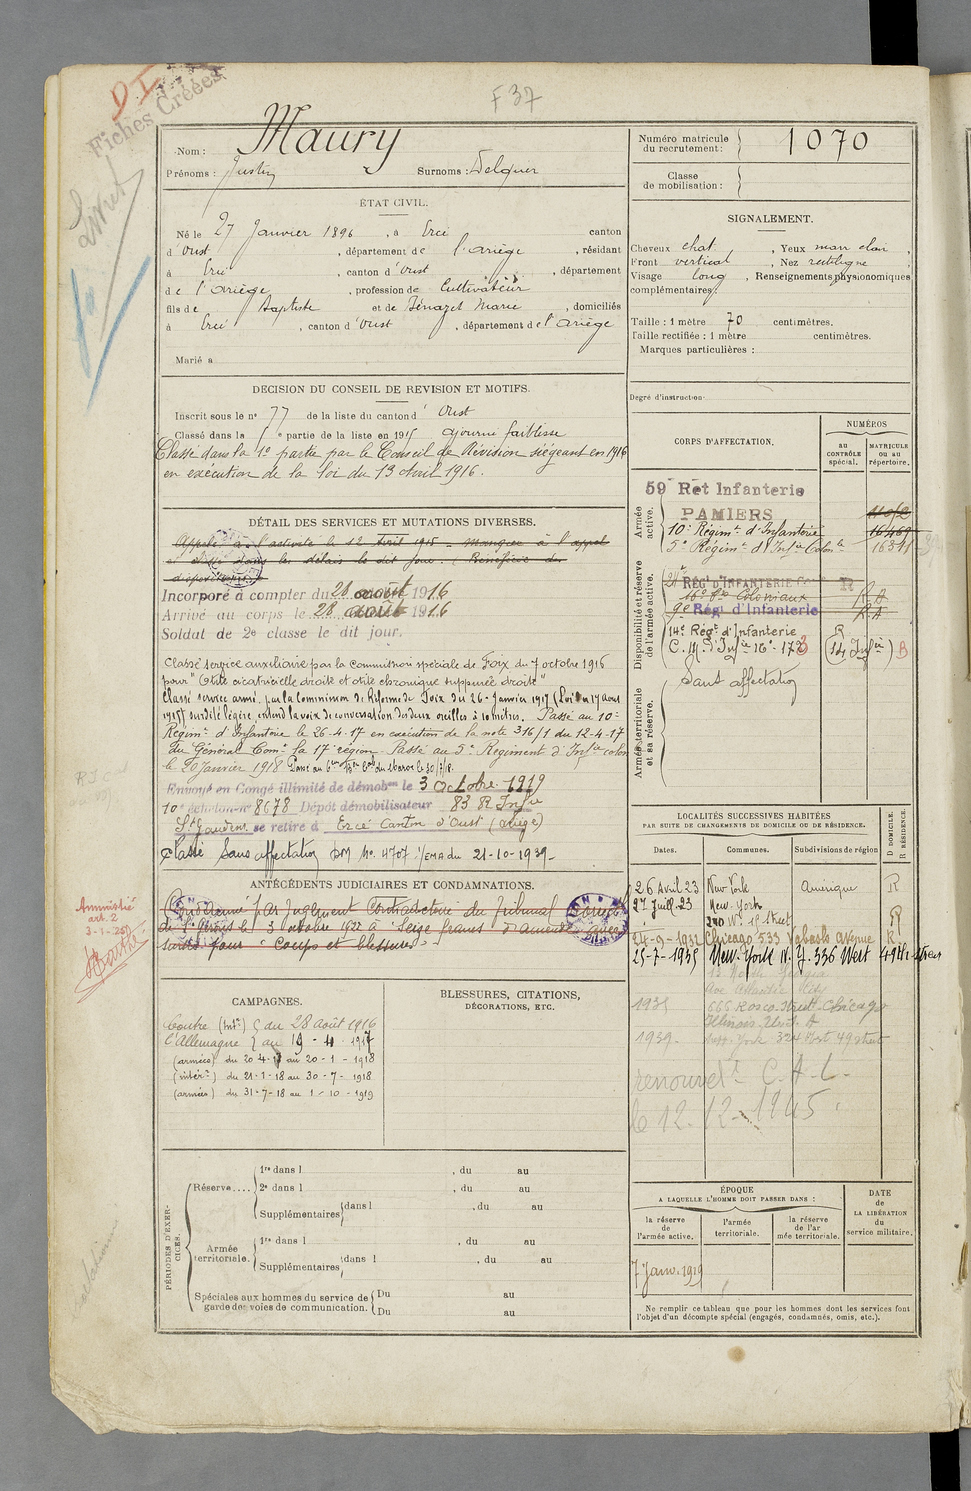 D I
Fiches Créées
F 37
Nom : Maury
Prénoms : Justin Surnoms : Delquer
Numéro matricule du recrutement : 1070
Classe de mobilisation :
ÉTAT CIVIL.
Né le 27 Janvier 1896, à Ercé canton
d'Oust, département de l'Ariège, résidant
à Ercé, canton d'Oust, département
de l'Ariège, profession de Cultivateur
fils de Baptiste et de Bénazet Marie, domiciliés
à Ercé, canton d'Oust, département de l'Ariège
Marié à
SIGNALEMENT.
Cheveux chat. , Yeux mar clair ,
Front vertical , Nez rectiligne ,
Visage long , Renseignements physionomiques
complémentaires :
Taille : 1 mètre 70 centimètres.
Taille rectifiée : 1 mètre centimètres.
Marques particulières :
Degré d'instruction
DECISION DU CONSEIL DE REVISION ET MOTIFS.
Inscrit sous le n° 77 de la liste du canton d'Oust
Classé dans la 5e partie de la liste en 1915 ajourné faiblesse
Classé dans la 1e partie par le Conseil de Révision siégeant en 1916
en exécution de la loi du 13 Avril 1916.
DÉTAIL DES SERVICES ET MUTATIONS DIVERSES.
Appelé à l'activité le 12 Avril 1915 - manque à l'appel
dans les délais le dit jour. Bénéficie du
Incorporé à compter du 28 août 1916
Arrivé au corps le 28 août 1916
Soldat de 2e classe le dit jour.
Classé service auxiliaire par la Commission spéciale de Foix du 7 octobre 1916
pour "Otite cicatricielle droite et otite chronique suppurée droite"
Classé service armé, par la Commission de Réforme de Foix du 26 - Janvier 1917 (Loi du 17 Aout
1915) surdité légère, entend la voix de conversation des deux oreilles à 10 mètres. Passé au 10e
Régimt d'Infanterie le 26-4-17 en exécution de la note 316/1 du 12-4-17
du Général Comt la 17e région - Passé au 5e Régiment d'Infrie colon
le 20 janvier 1918
Envoyé en Congé illimité de démobon le 3 Octobre 1919
10e échelon n° 8678 Dépôt démobilisateur 83 RInfie
St Gaudens. se retire à Ercé Canton d'Oust (Ariège)
Classé Sans affectation DM No. 4707 1/EMA du 21-10-1939-
ANTÉCÉDENTS JUDICIAIRES ET CONDAMNATIONS.
Condamné par Jugement Contradictoire du Tribunal Correct
de St Girons le 3 octobre 1922 à Seize francs d'amende avec
sursis pour "Coups et blessures"
Amnistié
art. 2
3-1-25
CAMPAGNES.
Contre (Intr) du 28 août 1916
l'Allemagne au 19 - 4 - 1917
(armées) du 20-4-17 au 20 - 1 - 1918
(intér) du 21-1-18 au 30 - 7 - 1918
(armées) du 31-7-18 au 1 - 10 - 1919
BLESSURES, CITATIONS,
DÉCORATIONS, ETC.
PÉRIODES D'EXERCICES.
Réserve....
1re dans l , du au
2e dans l , du au
Supplémentaires dans l , du au
Armée territoriale.
1re dans l , du au
Supplémentaires dans l , du au
Spéciales aux hommes du service de garde des voies de communication.
Du au
Du au
CORPS D'AFFECTATION.
NUMÉROS
au CONTRÔLE spécial.
MATRICULE ou au répertoire.
Armée active.
59 Rét Infanterie
PAMIERS
10e Régimt d'Infanterie 16462
5e Régimt d'Infie Colonle 16341
Disponibilité et réserve de l'armée active.
RÉGt D'INFANTERIE R
16e Coloniaux R A
9e Régt d'Infanterie R A
14e Régt d'Infanterie R
C. M. d'Infie 16e 173 (14 Infie) B
Armée territoriale et sa réserve.
Sans affectation
LOCALITÉS SUCCESSIVES HABITÉES
PAR SUITE DE CHANGEMENTS DE DOMICILE OU DE RÉSIDENCE.
Dates. Communes. Subdivisions de région D DOMICILE. R RÉSIDENCE.
26 Avril 23 New York Amérique R
27 Juill. 23 New-York
240 W. St Street R
24-9-1932 Chicago 533 Wabash Avenue R
25-7-1935 New-York N.Y. 336 West 49th Street
1935 666 Rosco Street Chicago
Illinois
1939. New York 324 West 49 Street
renouvelt C.A.L.
le 12-12-1945
ÉPOQUE
A LAQUELLE L'HOMME DOIT PASSER DANS :
la réserve de l'armée active.
l'armée territoriale.
la réserve de l'armée territoriale.
DATE de LA LIBÉRATION du service militaire.
7 Janv. 1919
Ne remplir ce tableau que pour les hommes dont les services font
l'objet d'un décompte spécial (engagés, condamnés, omis, etc.).